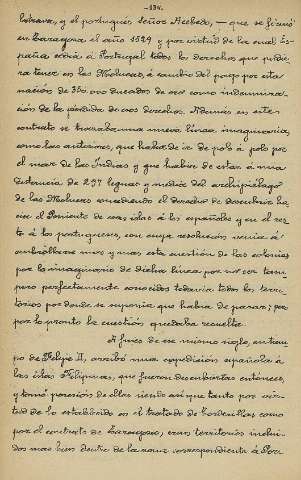 -134-
latrava, y el portugués Señor Acebedo, — que se firmó
en Zaragoza el año 1529 y por virtud de la cual Es-
paña cedía á Portugal todos los derechos que pudie-
ra tener en las Molucas, á cambio del pago por esta
nación de 350.000 ducados de oro como indemniza-
ción de la pérdida de esos derechos. Además en este
contrato se trazaba una nueva línea imaginaria,
como las anteriores, que había de ir de polo á polo por
el mar de las Indias y que habría de estar á una
distancia de 297 leguas y media del archipiélago
de las Molucas concediendo el derecho de descubrir ha-
cia el Poniente de esas islas á los españoles y en el res-
to á los portugueses, con cuya resolución venía á
embrollarse mas y mas esta cuestión de las colonias
por lo imaginario de dicha línea, por no ser tam-
poco perfectamente conocidos todavía todos los terri-
torios por donde se suponía que había de pasar; pe-
ro por lo pronto la cuestión quedaba resuelta.
A fines de ese mismo siglo, en tiem-
po de Felipe II, arribó una expedición española á
las islas Filipinas, que fueron descubiertas entonces,
y tomó posesión de ellas siendo así que tanto por vir-
tud de lo establecido en el tratado de Tordesillas como
por el contrato de Zaragoza, eran territorios incluí-
dos mas bien dentro de la zona correspondiente á Por-